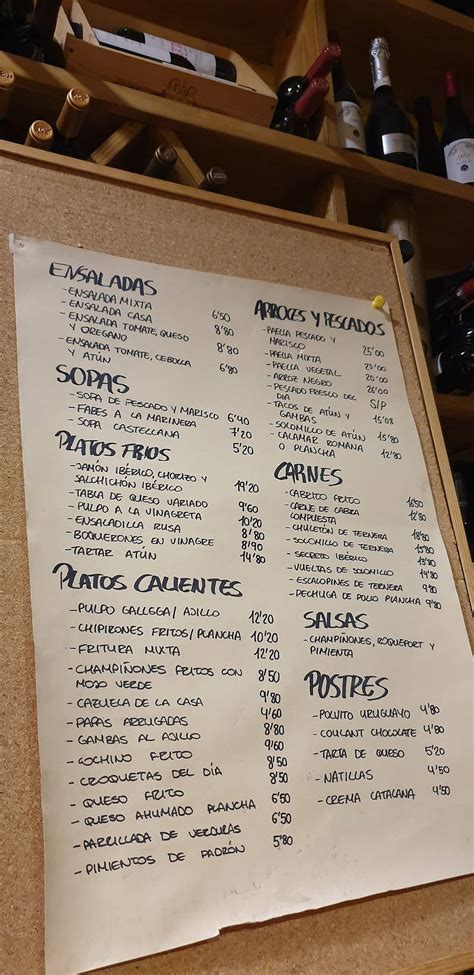 ENSALADAS
- ENSALADA MIXTA 6'50
- ENSALADA CASA 8'80
- ENSALADA TOMATE, QUESO
Y OREGANO 8'80
- ENSALADA TOMATE, CEBOLLA
Y ATÚN 6'80
SOPAS
- SOPA DE PESCADO Y MARISCO 6'40
- FABES A LA MARINERA 7'20
- SOPA CASTELLANA 5'20
PLATOS FRIOS
- JAMÓN IBÉRICO, CHORIZO Y
SALCHICHÓN IBÉRICO 19'20
- TABLA DE QUESO VARIADO 9'60
- PULPO A LA VINAGRETA 10'20
- ENSALADILLA RUSA 8'80
- BOQUERONES EN VINAGRE 8'90
- TARTAR ATÚN 14'80
PLATOS CALIENTES
- PULPO GALLEGA / AJILLO 12'20
- CHIPIRONES FRITOS/PLANCHA 10'20
- FRITURA MIXTA 12'20
- CHAMPIÑONES FRITOS CON
MOJO VERDE 8'50
- CAZUELA DE LA CASA 9'80
- PAPAS ARRUGADAS 4'60
- GAMBAS AL AJILLO 8'80
- COCHINO FRITO 9'60
- CROQUETAS DEL DÍA 8'50
- QUESO FRITO 8'50
- QUESO AHUMADO PLANCHA 6'50
- PARRILLADA DE VERDURAS 6'50
- PIMIENTOS DE PADRÓN 5'80
ARROCES Y PESCADOS
- PAELLA PESCADO Y
MARISCO 25'00
- PAELLA MIXTA 23'00
- PAELLA VEGETAL 20'00
- ARROZ NEGRO 26'00
- PESCADO FRESCO DEL
DIA S/P
- TACOS DE ATÚN Y
GAMBAS 15'08
- SOLOMILLO DE ATÚN 15'80
- CALAMAR ROMANA
O PLANCHA 12'80
CARNES
- CABRITO FRITO 16'50
- CARNE DE CABRA
COMPUESTA 12'80
- CHULETÓN DE TERNERA 18'80
- SOLOMILLO DE TERNERA 15'80
- SECRETO IBÉRICO 13'80
- VUELTAS DE SOLOMILLO 14'80
- ESCALOPINES DE TERNERA 9'80
- PECHUGA DE POLLO PLANCHA 9'80
SALSAS
- CHAMPIÑONES, ROQUEFORT Y
PIMIENTA
POSTRES
- POLVITO URUGUAYO 4'80
- COULANT CHOCOLATE 4'80
- TARTA DE QUESO 5'20
- NATILLAS 4'50
- CREMA CATALANA 4'50